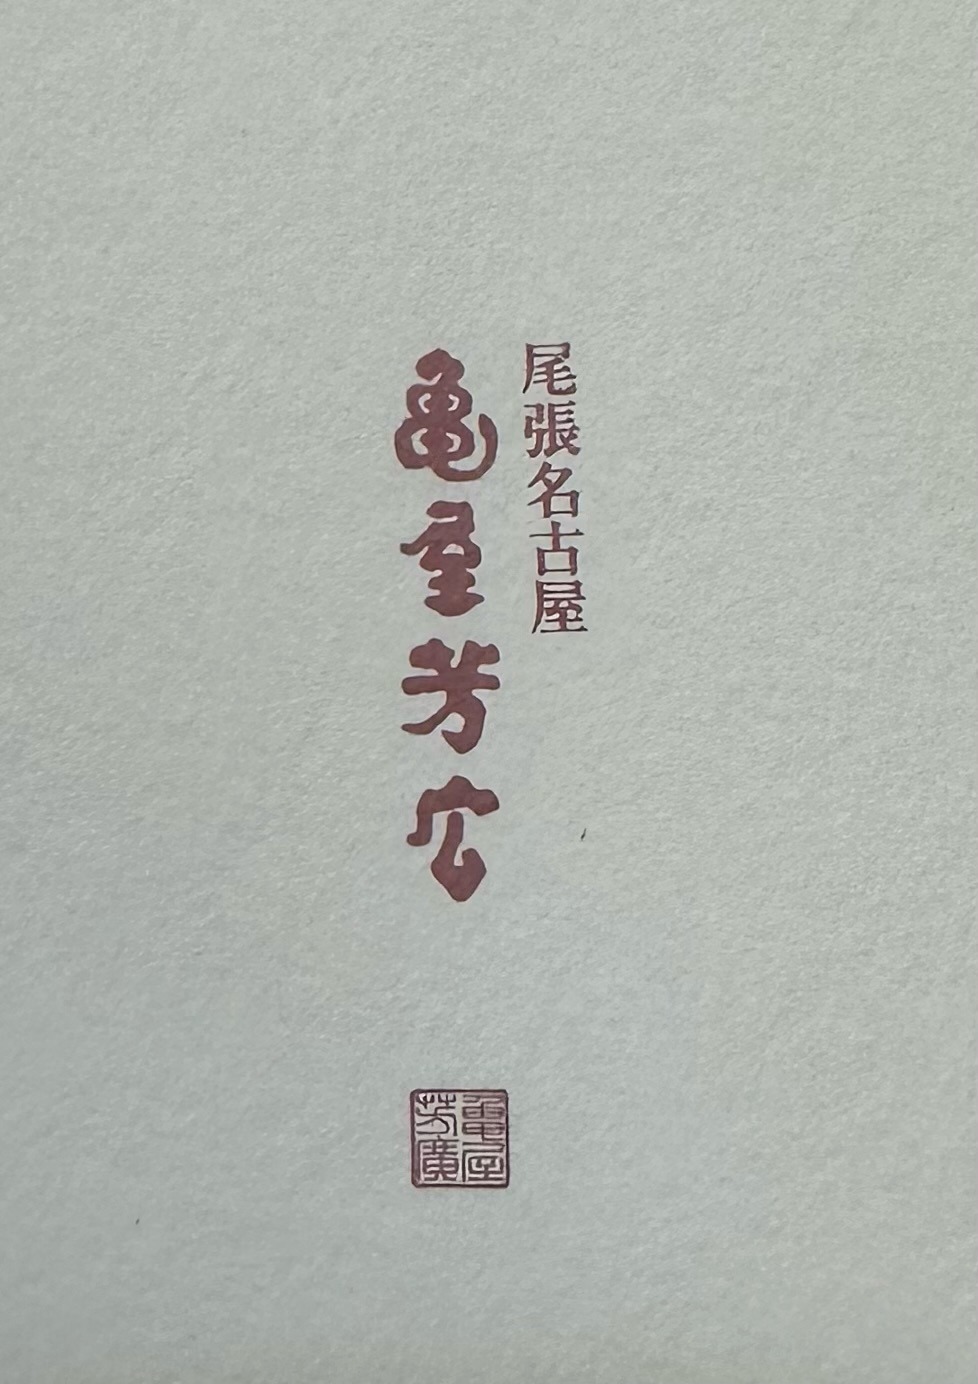 尾張名古屋
亀屋芳広
亀屋
芳廣